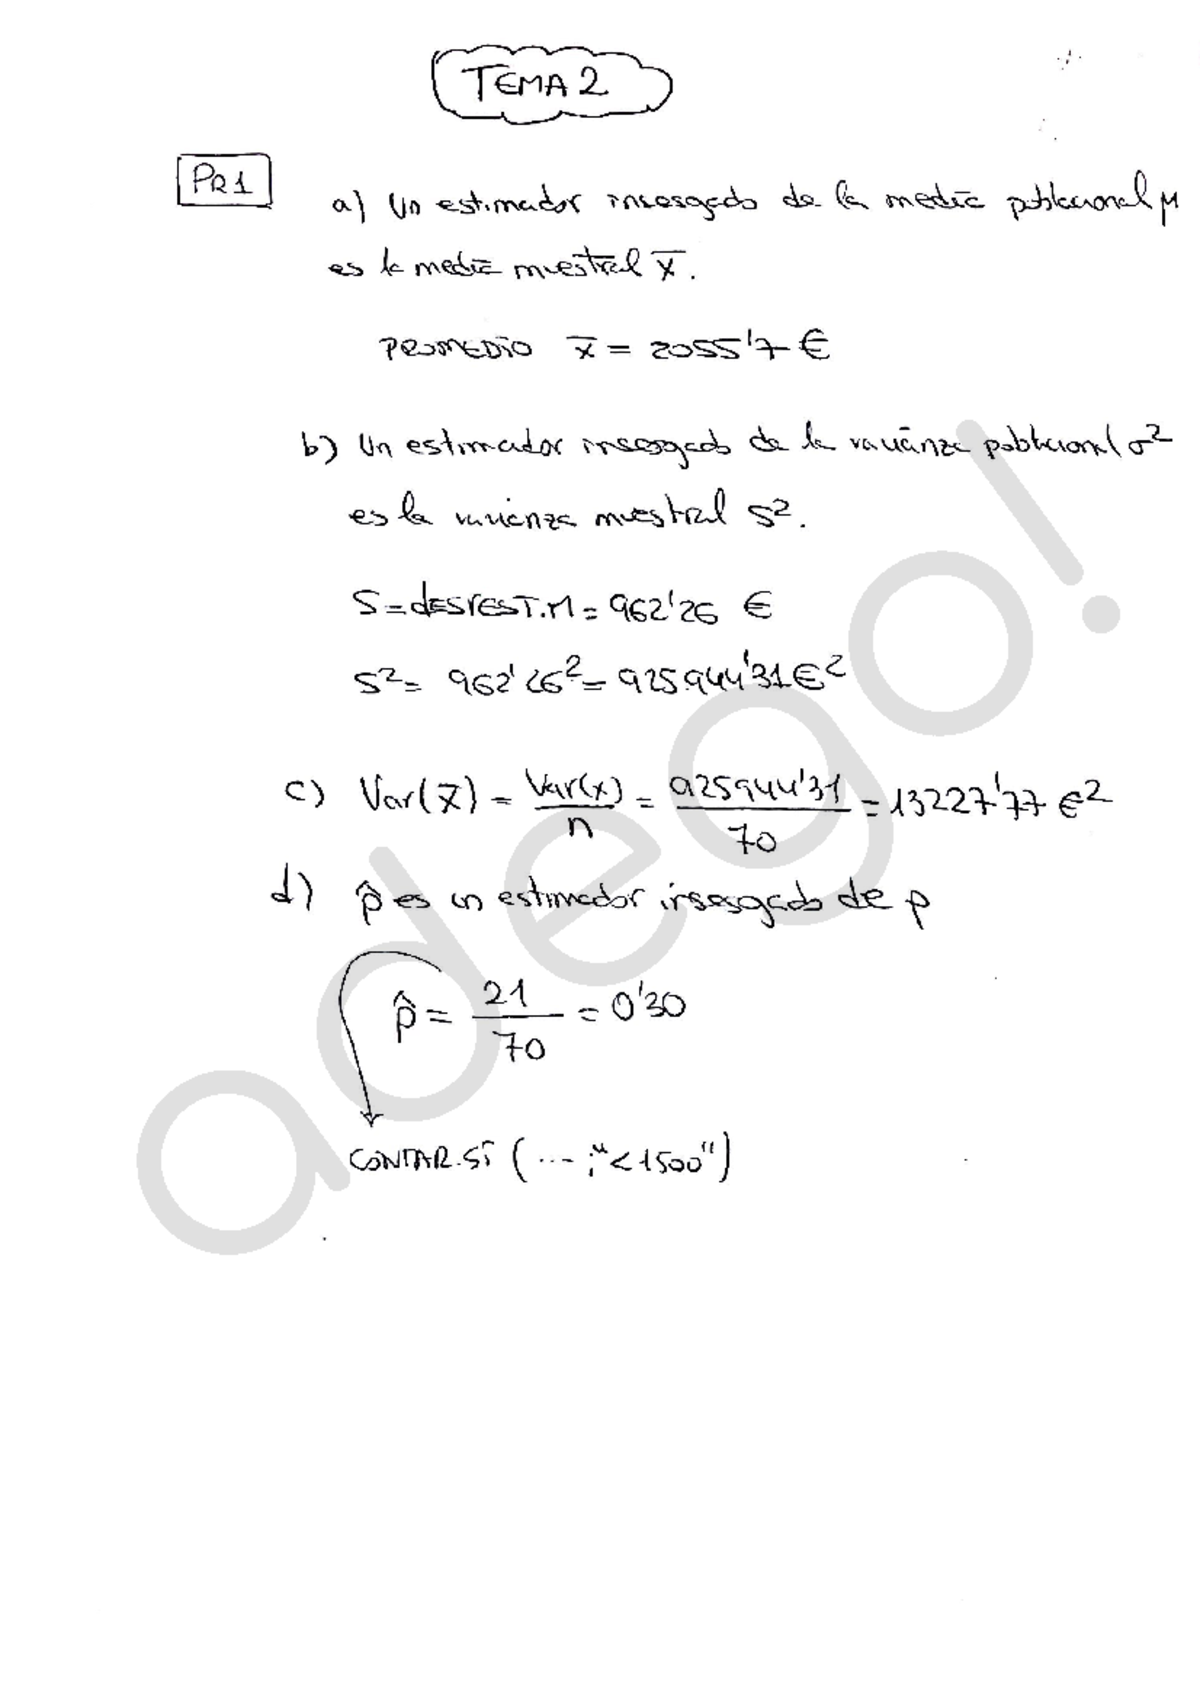 TEMA 2
PR1
a) Un estimador insesgado de la media poblacional μ
es la media muestral x̄.
PROMEDIO x̄ = 2055'7 €
b) Un estimador insesgado de la varianza poblacional σ²
es la varianza muestral S².
S = DESVEST.M = 962'26 €
S² = 962'26² = 925944'31 €²
c) Var(x̄) = Var(x)/n = 925944'31/70 = 13227'77 €²
d) p̂ es un estimador insesgado de p
p̂ = 21/70 = 0'30
CONTAR.SI (--- ;"<1500")
adego!